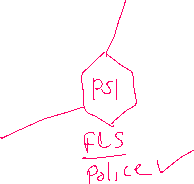 PSI
FLS
Police